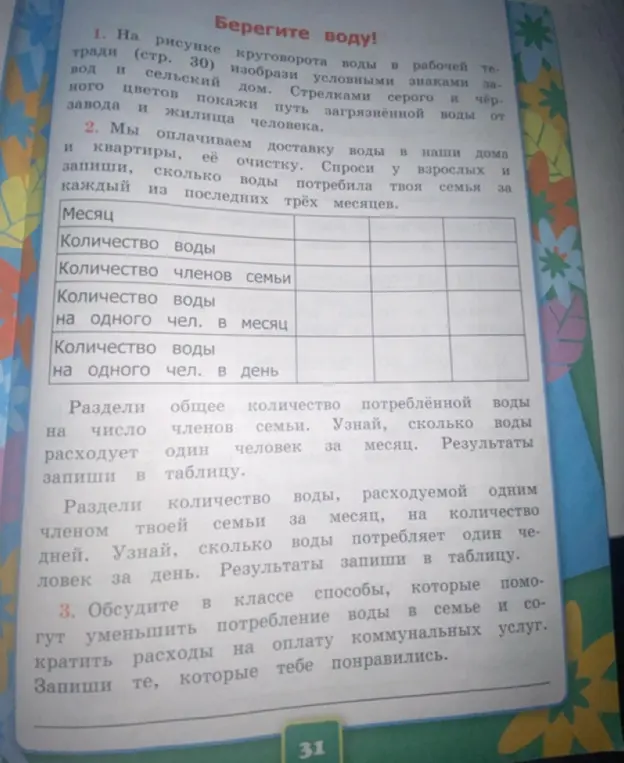 Берегите воду!
1. На рисунке круговорота воды в рабочей те-
тради (стр. 30) изобрази условными знаками за-
вод и сельский дом. Стрелками серого и чёр-
ного цветов покажи путь загрязнённой воды от
завода и жилища человека.
2. Мы оплачиваем доставку воды в наши дома
и квартиры, её очистку. Спроси у взрослых и
запиши, сколько воды потребила твоя семья за
каждый из последних трёх месяцев.
Месяц
Количество воды
Количество членов семьи
Количество воды
на одного чел. в месяц
Количество воды
на одного чел. в день
Раздели общее количество потреблённой воды
на число членов семьи. Узнай, сколько воды
расходует один человек за месяц. Результаты
запиши в таблицу.
Раздели количество воды, расходуемой одним
членом твоей семьи за месяц, на количество
дней. Узнай, сколько воды потребляет один че-
ловек за день. Результаты запиши в таблицу.
3. Обсудите в классе способы, которые помо-
гут уменьшить потребление воды в семье и со-
кратить расходы на оплату коммунальных услуг.
Запиши те, которые тебе понравились.
31